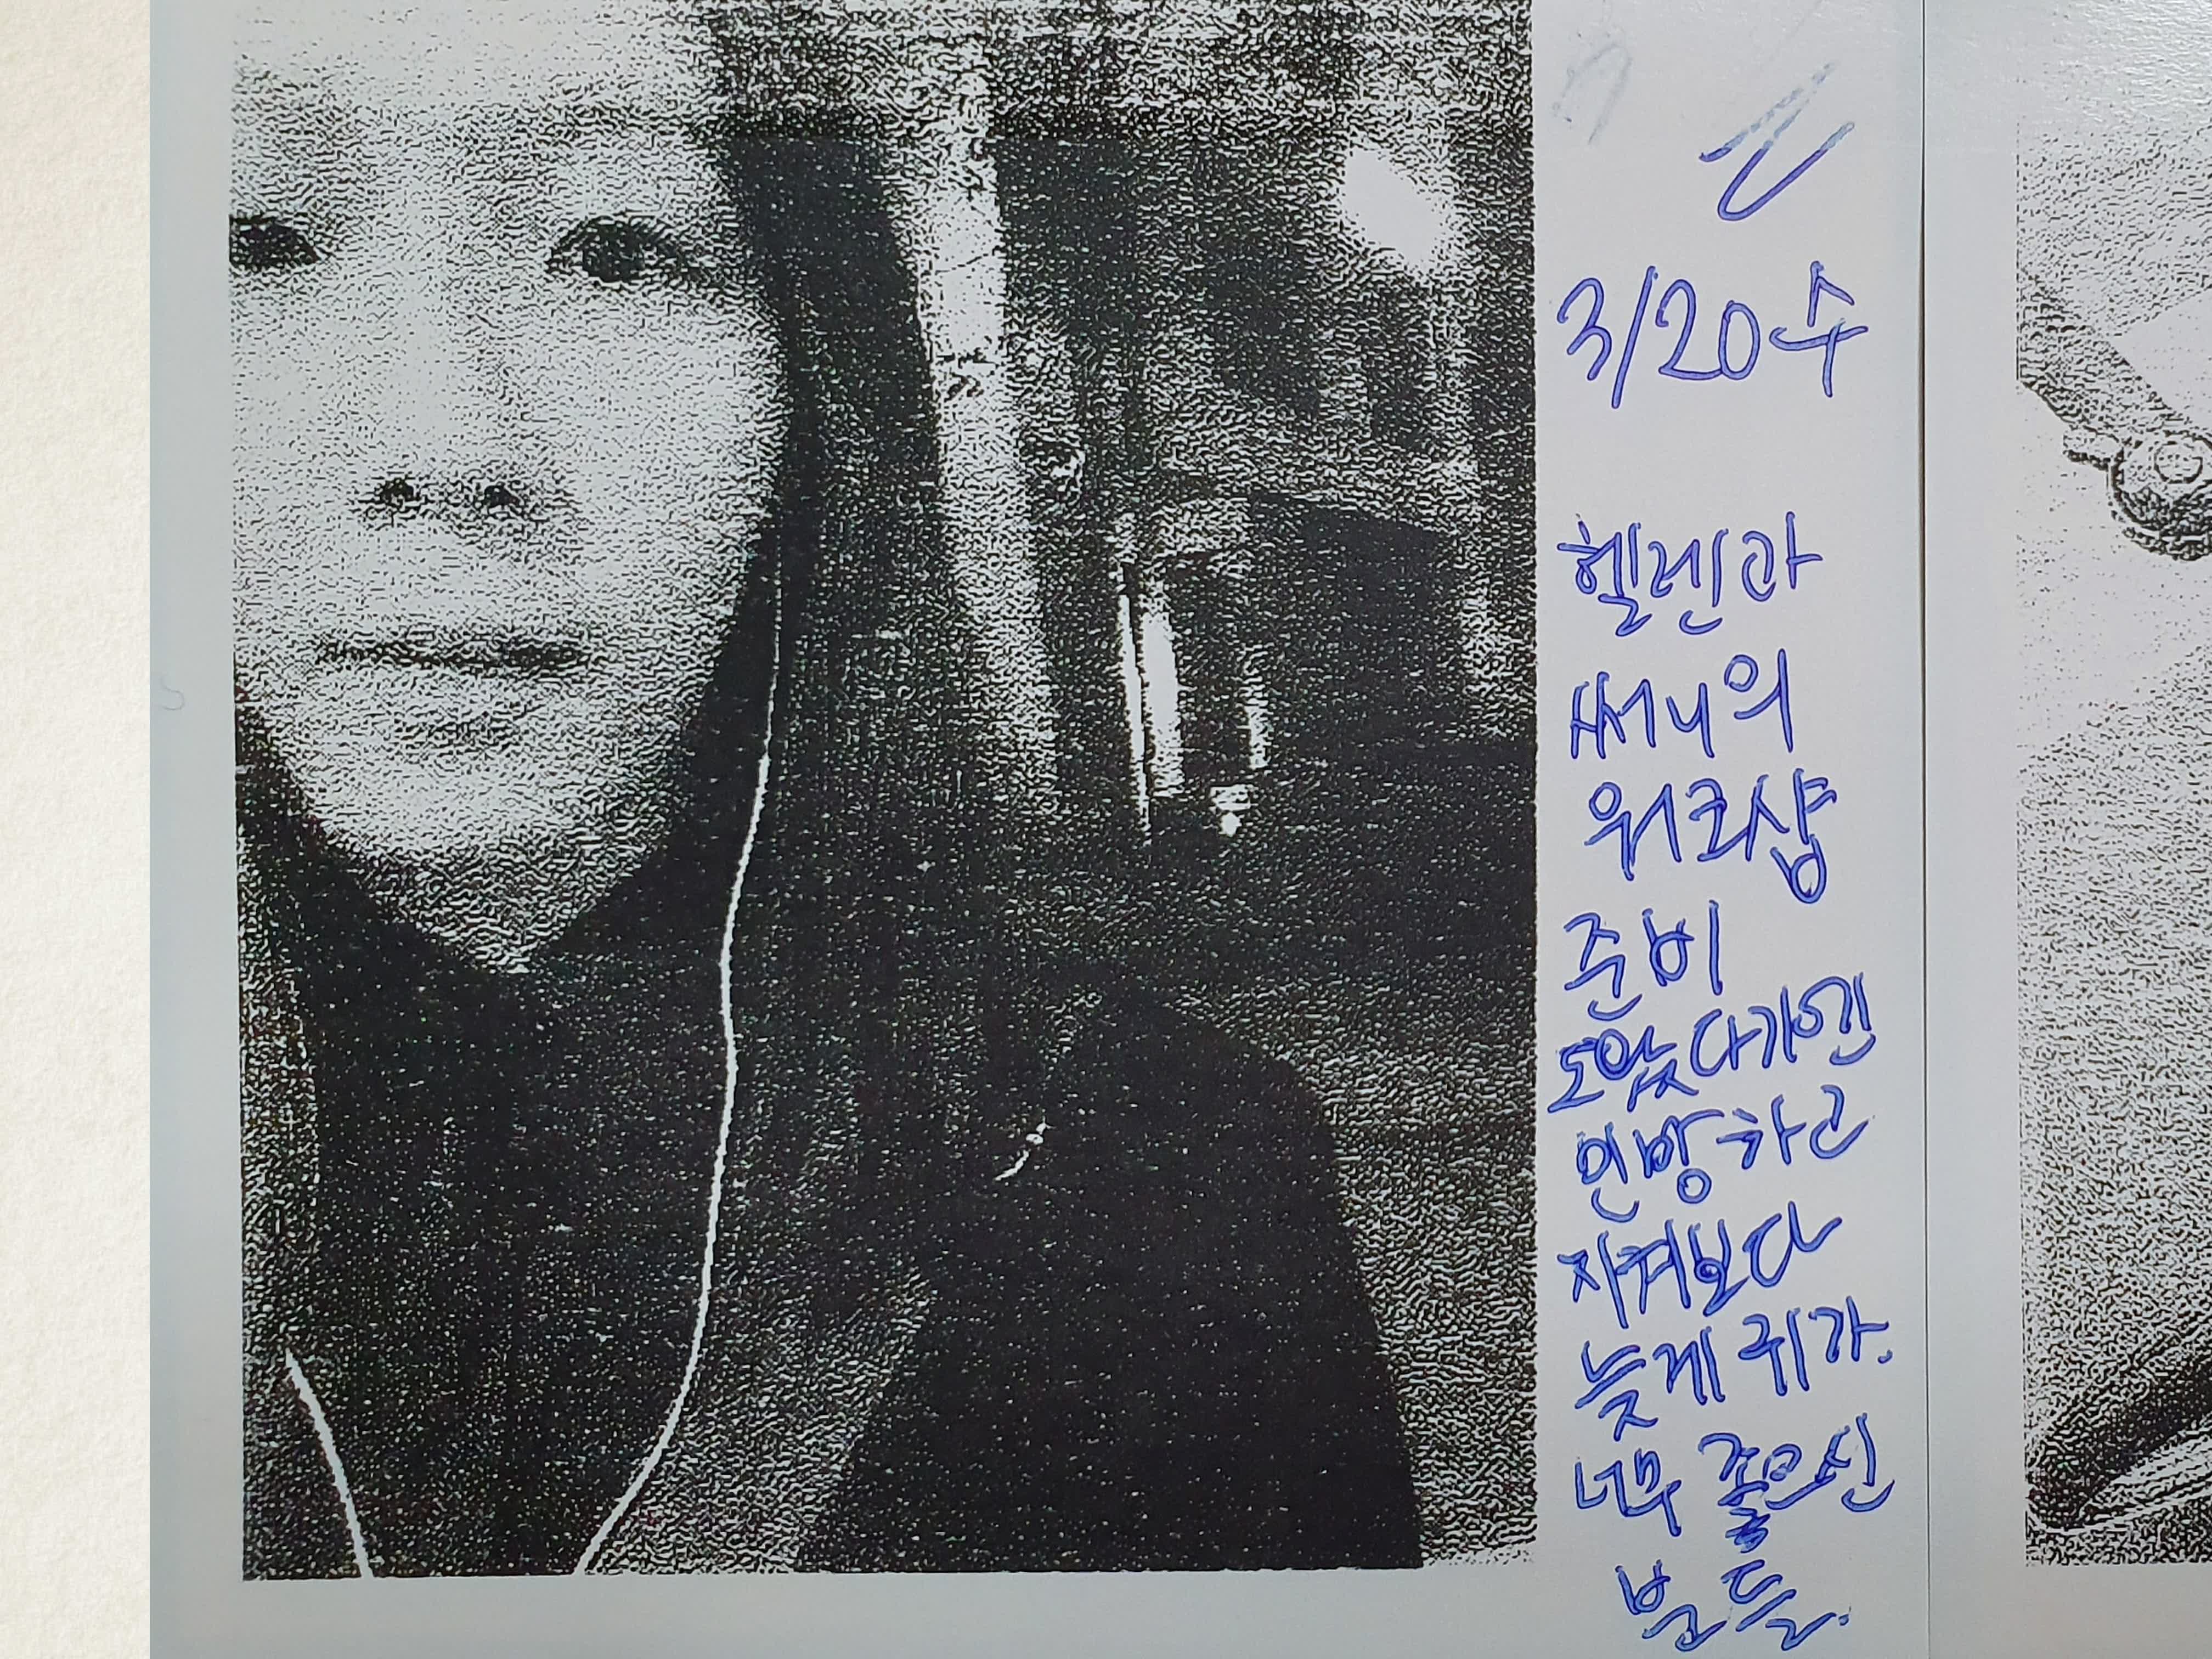 3/20수
헬렌과
써니의
워크샵
준비
도왔다가
인방하고
자켜보다
늦게 귀가.
너무 좋으신
분들.